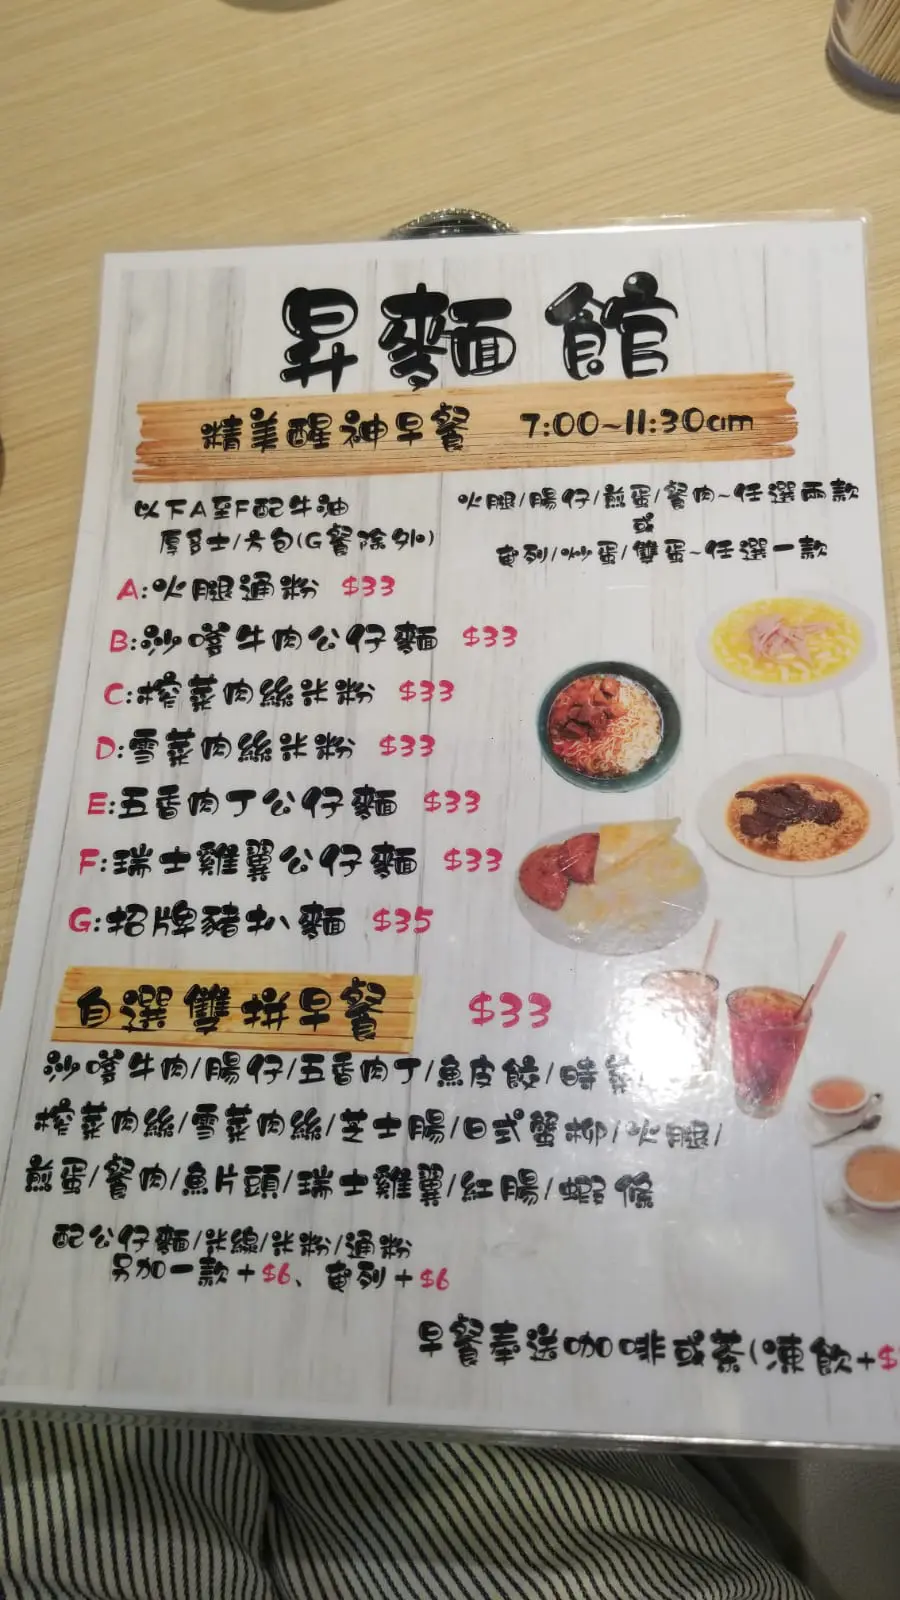 昇麵館
精美醒神早餐 7:00~11:30am
以下A至F配牛油
厚多士/方包(G餐除外)
火腿/腸仔/煎蛋/餐肉~任選兩款
或
奄列/炒蛋/雙蛋~任選一款
A:火腿通粉 $33
B:沙嗲牛肉公仔麵 $33
C:榨菜肉絲米粉 $33
D:雪菜肉絲米粉 $33
E:五香肉丁公仔麵 $33
F:瑞士雞翼公仔麵 $33
G:招牌豬扒麵 $35
自選雙拼早餐 $33
沙嗲牛肉/腸仔/五香肉丁/魚皮餃/時菜
榨菜肉絲/雪菜肉絲/芝士腸/日式蟹柳/火腿/
煎蛋/餐肉/魚片頭/瑞士雞翼/紅腸/蝦條
配公仔麵/米線/米粉/通粉
另加一款+$6、奄列+$6
早餐奉送咖啡或茶(凍飲+$